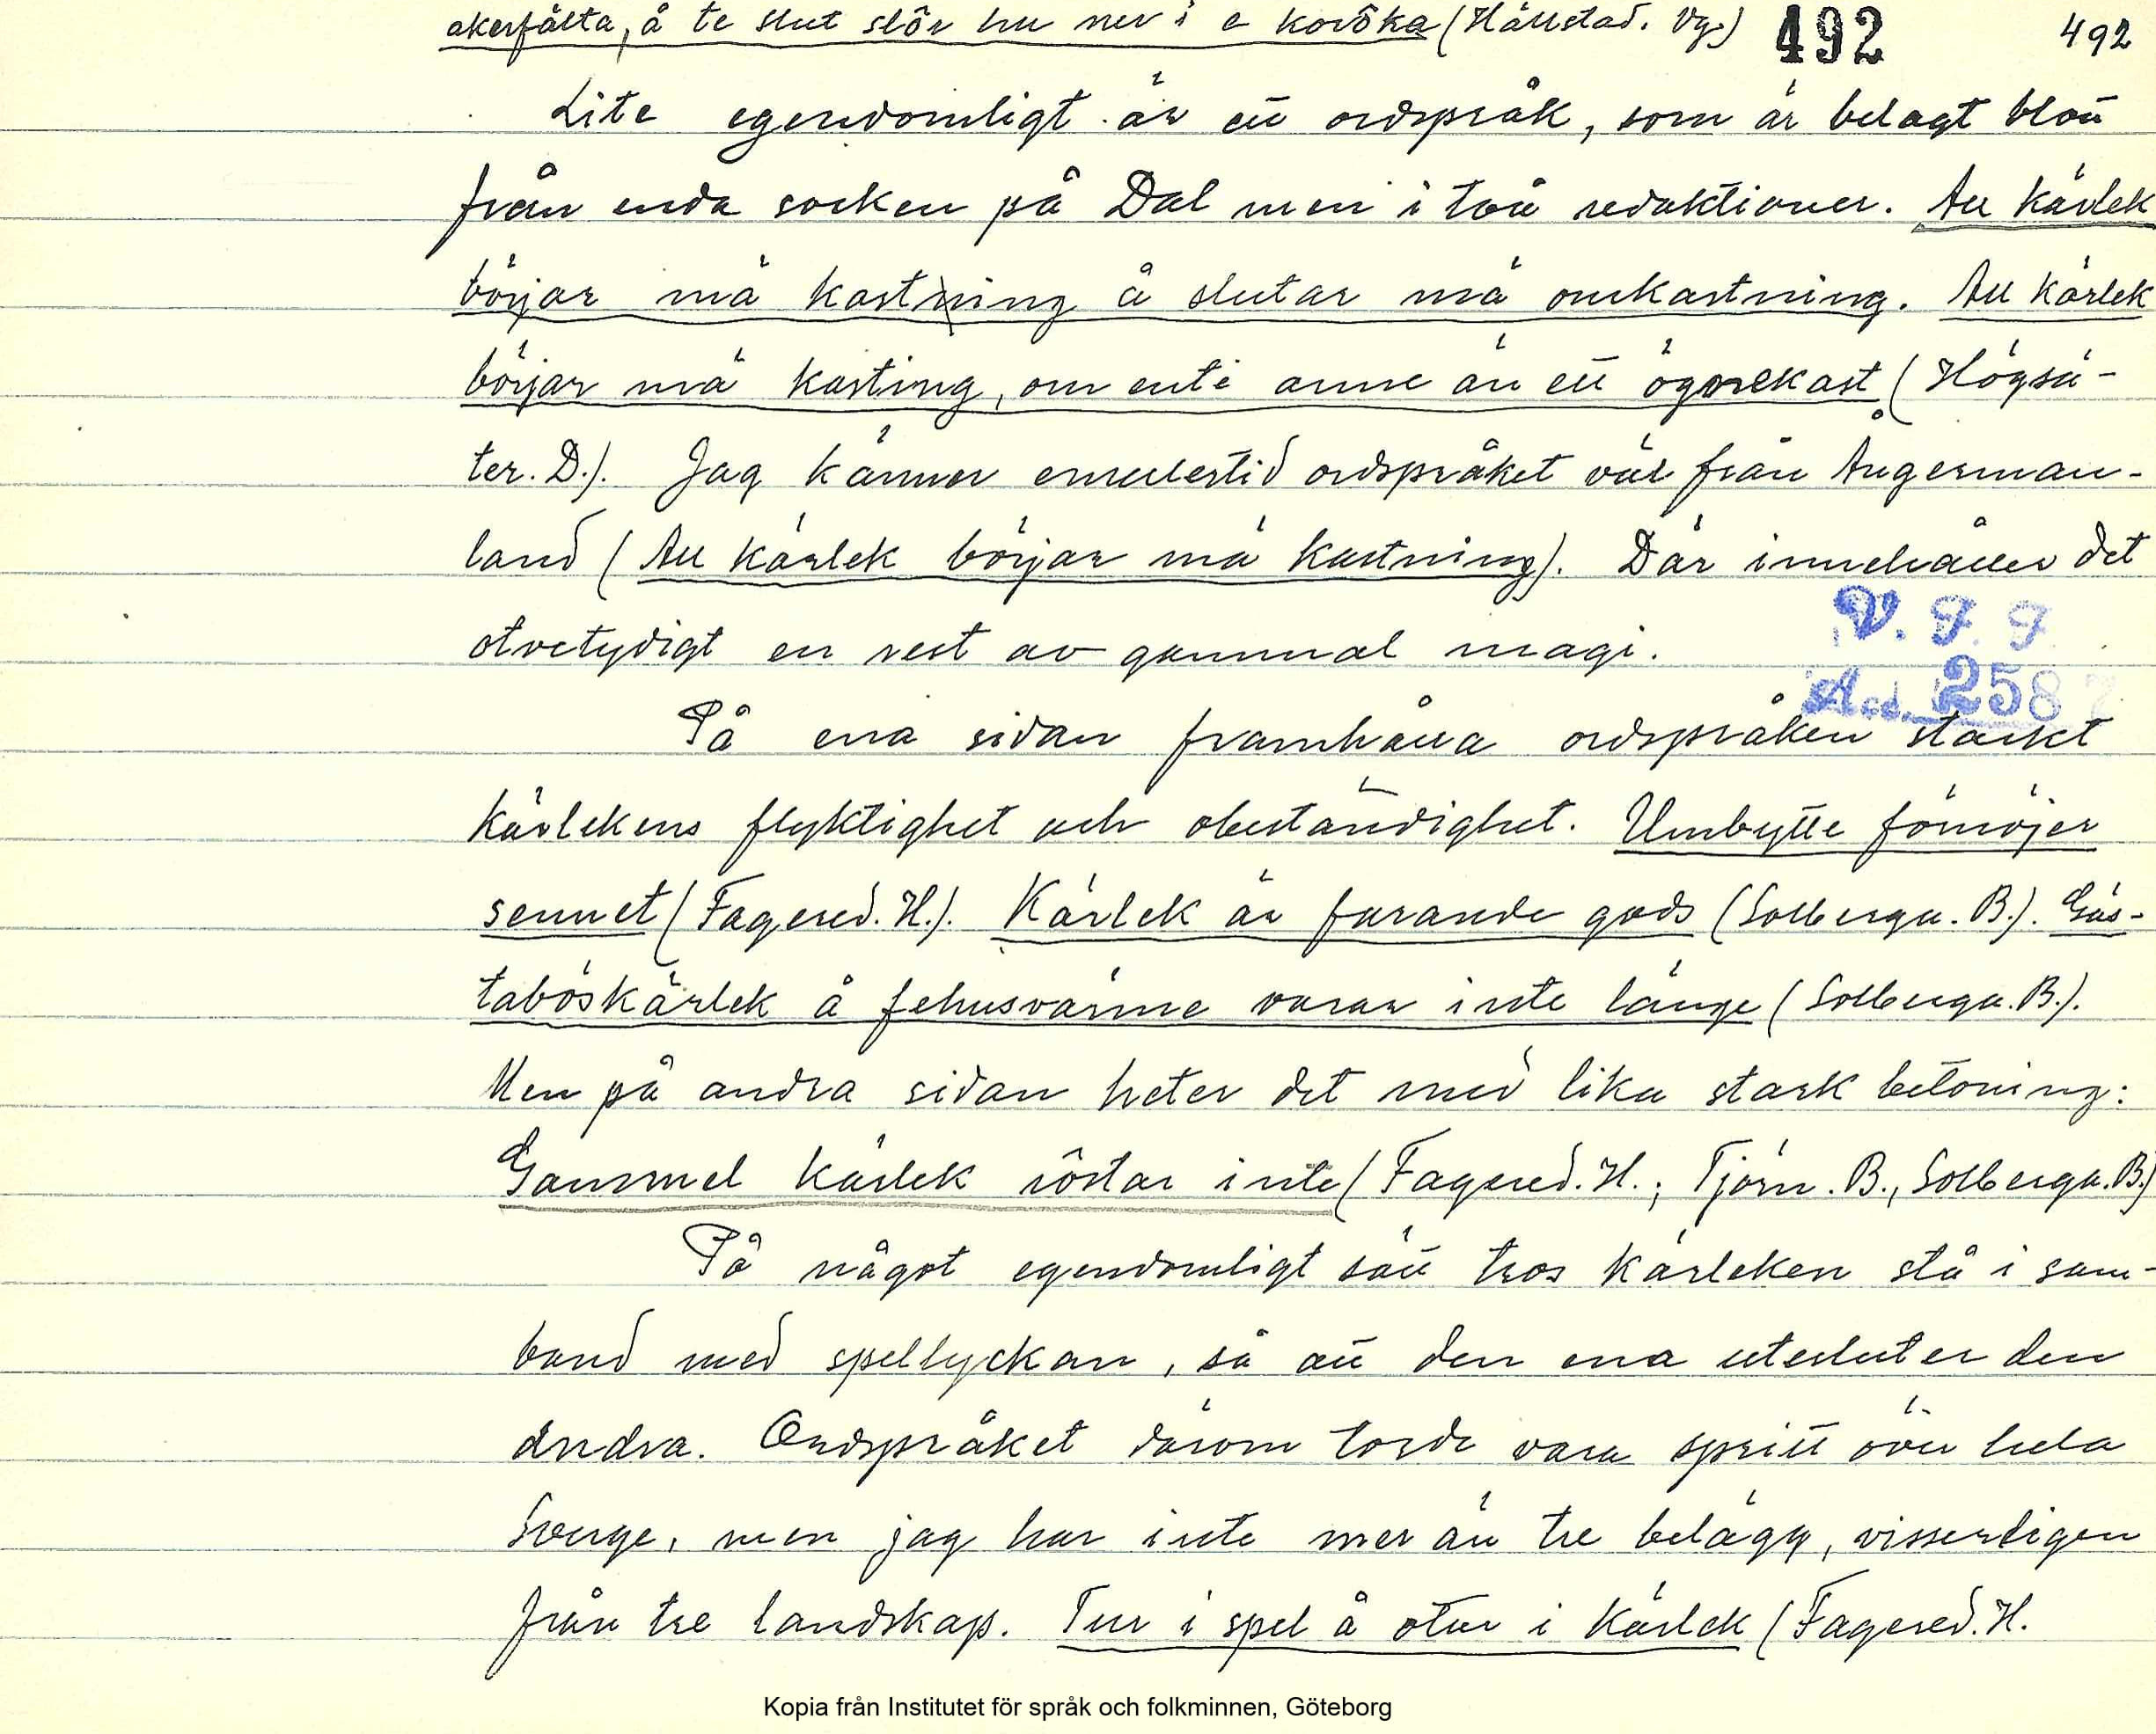 åkerfälta, å te slut slôr hu ner i e korôka (Hällstad. Vg.) 492 492
Lite egendomligt är ett ordspråk, som är belagt blott
från enda socken på Dal men i två redaktioner. All kärlek
börjar mä kastning å slutar mä omkastning. All kärlek
börjar mä kasting, om ente anne än ett ögnekast (Högsä-
ter. D.). Jag känner emellertid ordspråket väl från Ångerman-
land (All kärlek börjar mä kastning). Där innehåller det
otvetydigt en rest av gammal magi.
V. F. F.
Acc. 2587
På ena sidan framhålla ordspråken starkt
kärlekens flyktighet och obeständighet. Umbytte förnöjer
sennet (Fagered. H.). Kärlek är farande gods (Solberga. B.). Gäs-
taböskärlek å fehusvärme varar inte länge (Solberga. B.).
Men på andra sidan heter det med lika stark betoning:
Gammel kärlek röstar inte (Fagered. H.; Tjörn. B., Solberga. B.)
På något egendomligt sätt tros kärleken stå i sam-
band med spellyckan, så att den ena utesluter den
andra. Ordspråket därom torde vara spritt över hela
Sverge, men jag har inte mer än tre belägg, visserligen
från tre landskap. Tur i spel å otur i kärlek (Fagered. H.
Kopia från Institutet för språk och folkminnen, Göteborg